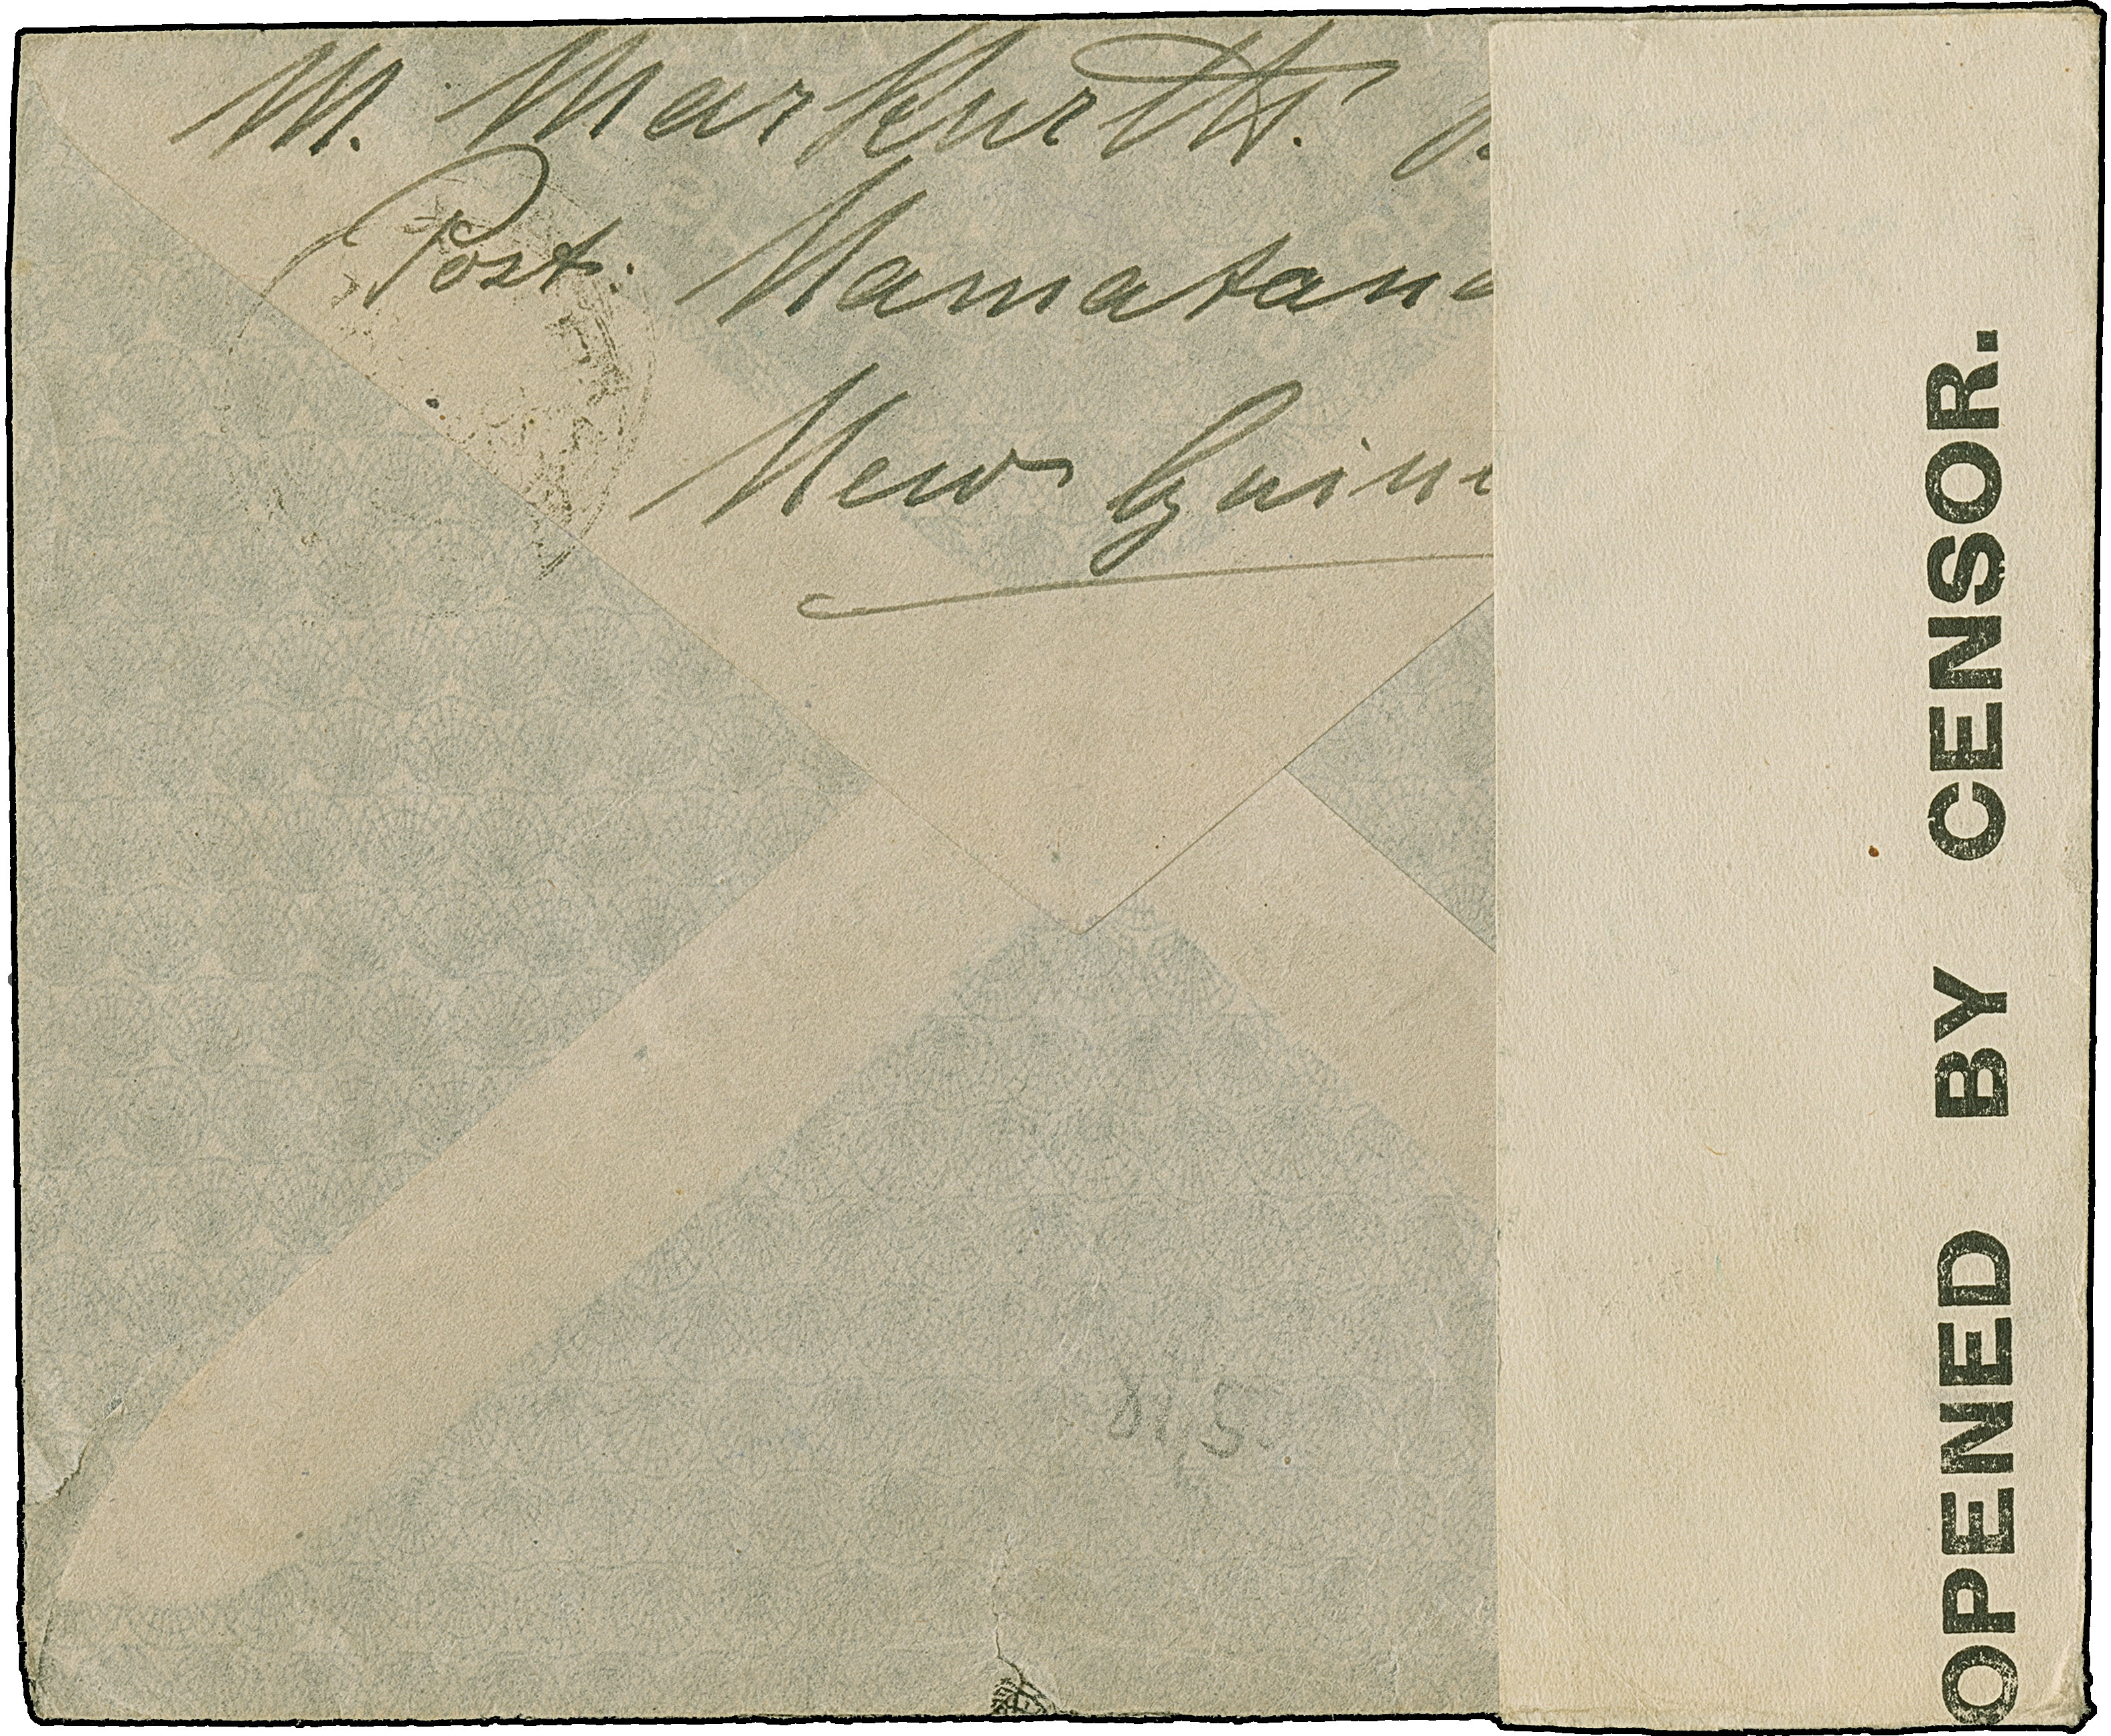 M. Markurth.
Post. Namatana
New Guine
OPENED BY CENSOR.